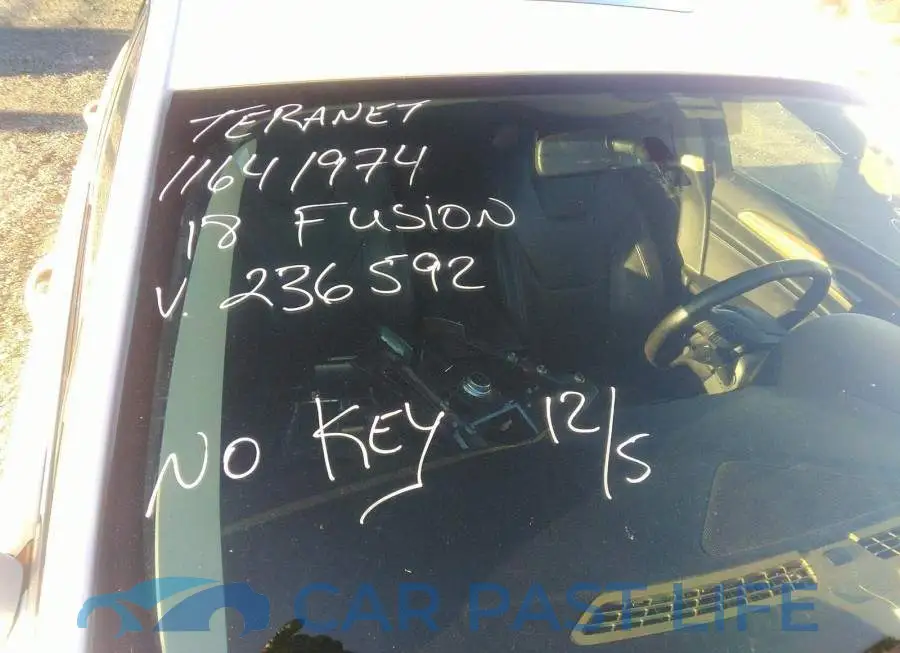 TERANET
11641974
18 FUSION
V. 236592
NO KEY 12/5
CAR PAST LIFE